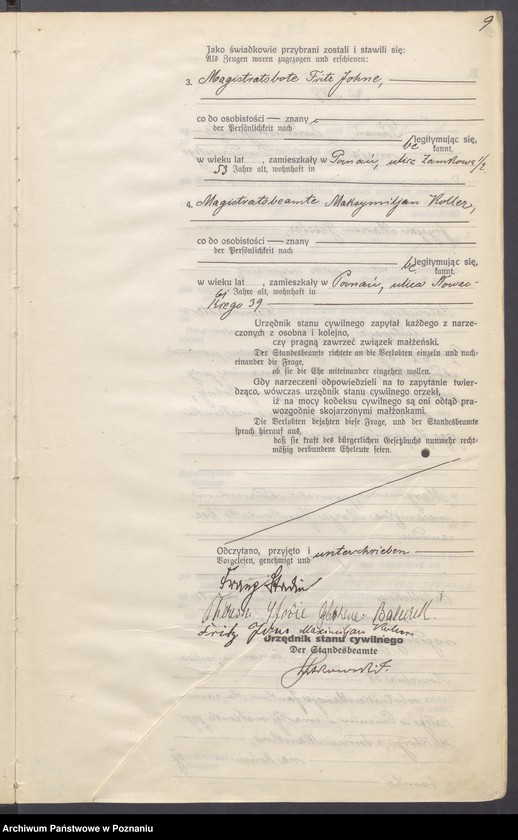 9
Jako świadkowie przybrani zostali i stawili się:
Als Zeugen waren zugezogen und erschienen:
3. Magistratsbote Fritz Johne,
co do osobistości — znany
der Persönlichkeit nach
be legitymując się,
kannt,
w wieku lat , zamieszkały w Poznań, ulica Zamkowa 1/2
53 Jahre alt, wohnhaft in
4. Magistratsbeamte Maksymiljan Koller,
co do osobistości — znany
der Persönlichkeit nach
be legitymując się,
kannt,
w wieku lat , zamieszkały w Poznań, ulica
Jahre alt, wohnhaft in
39.
Urzędnik stanu cywilnego zapytał każdego z narze-
czonych z osobna i kolejno,
czy pragną zawrzeć związek małżeński.
Der Standesbeamte richtete an die Verlobten einzeln und nach-
einander die Frage,
ob sie die Ehe miteinander eingehen wollen.
Gdy narzeczeni odpowiedzieli na to zapytanie twier-
dząco, wówczas urzędnik stanu cywilnego orzekł,
iż na mocy kodeksu cywilnego są oni odtąd pra-
wozgodnie skojarzonymi małżonkami.
Die Verlobten bejahten diese Frage, und der Standesbeamte
sprach hierauf aus,
daß sie kraft des bürgerlichen Gesetzbuchs nunmehr recht-
mäßig verbundene Eheleute seien.
Odczytano, przyjęto i unterschrieben
Vorgelesen, genehmigt und
Franz
Fritz Maximiljan
Urzędnik stanu cywilnego
Der Standesbeamte
Archiwum Państwowe w Poznaniu